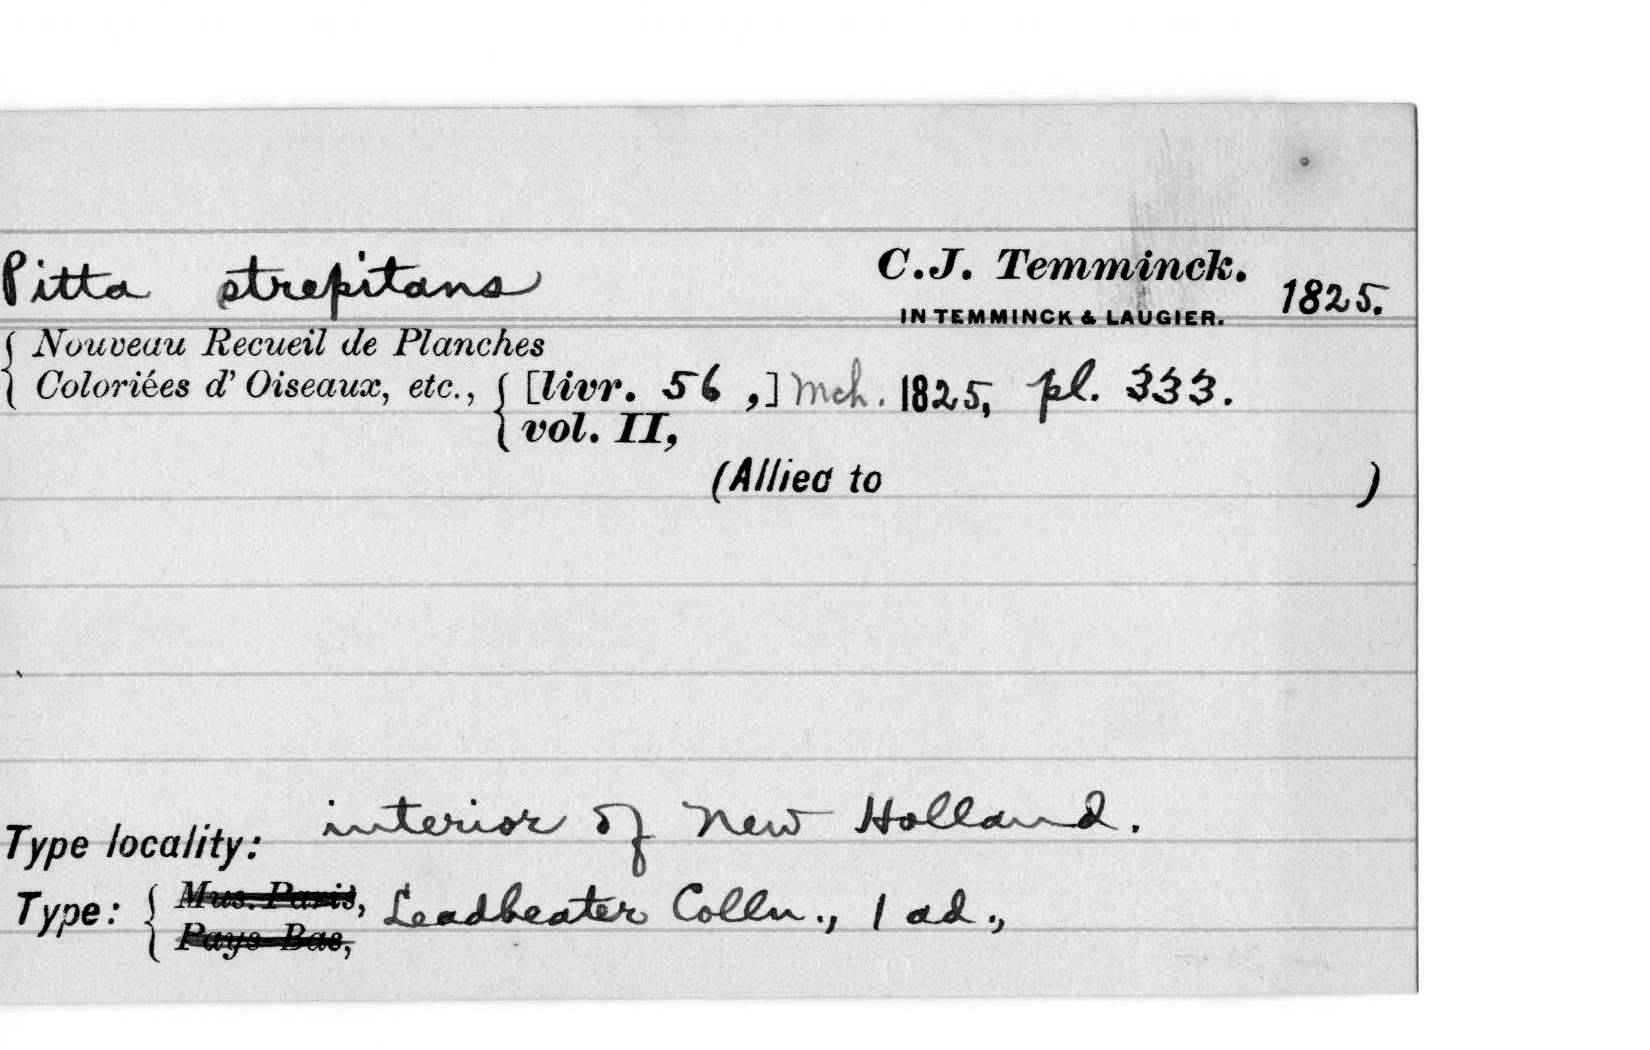 Pitta strepitans C.J. Temminck. 1825.
IN TEMMINCK & LAUGIER.
Nouveau Recueil de Planches
Coloriées d' Oiseaux, etc., [livr. 56 ,] Mch. 1825, pl. 333.
vol. II,
(Allied to )
Type locality: interior of New Holland.
Type: Mus. Paris, Leadbeater Colln., 1 ad.,
Pays-Bas,